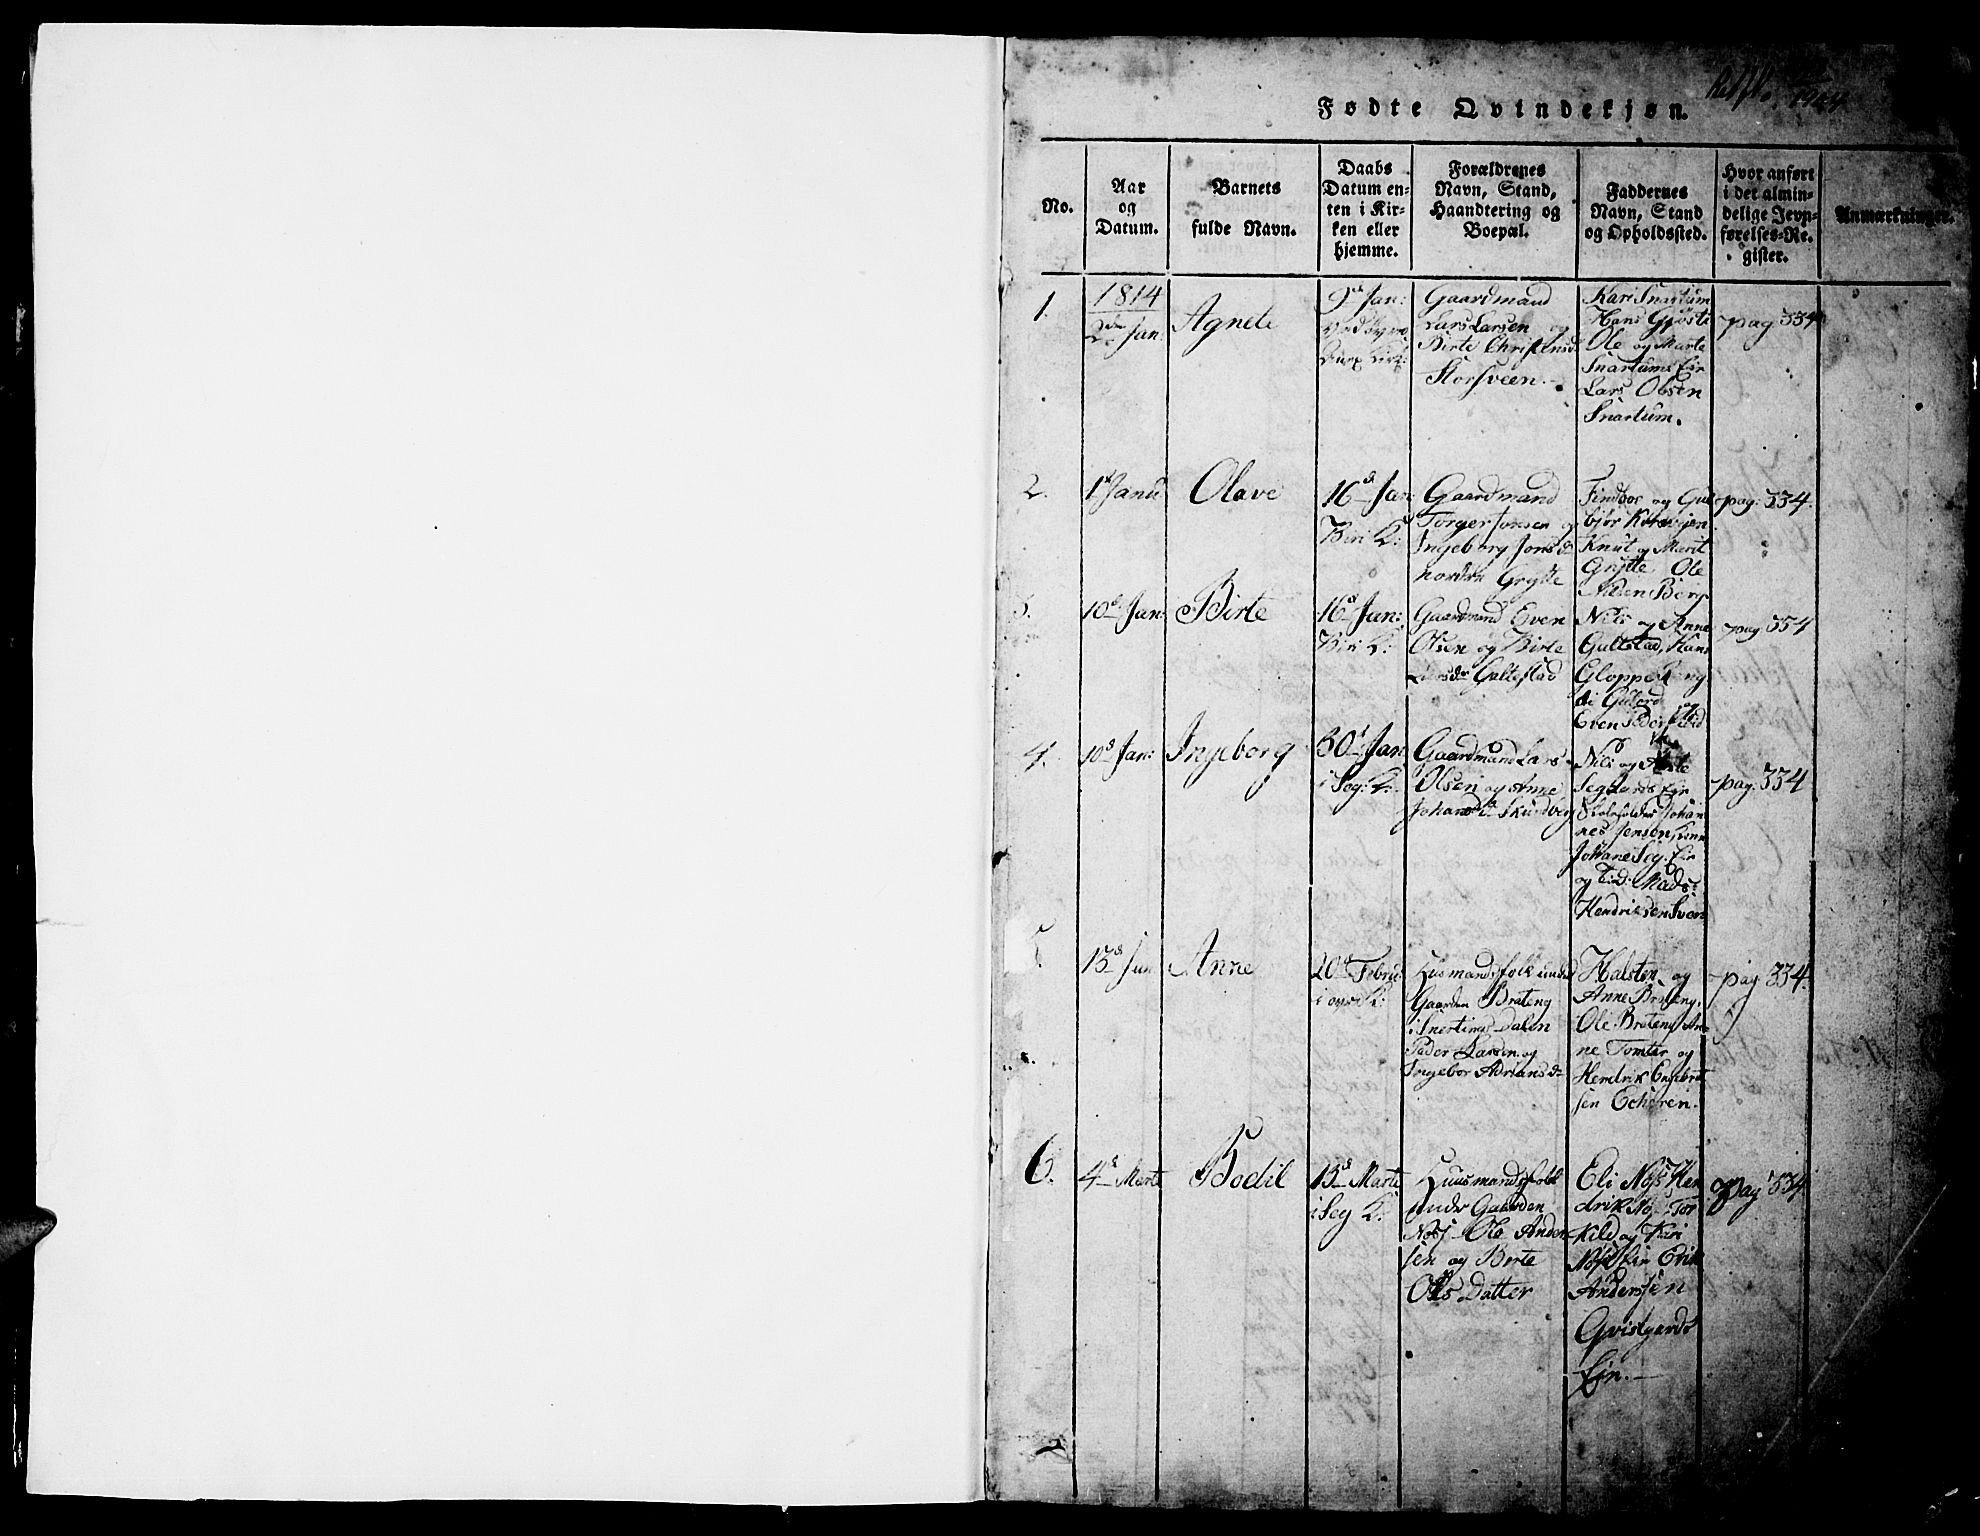 Fødte Qvindekjøn.
1944
No.
Aar
og
Datum.
Barnets
fulde Navn.
Daabs
Datum en-
ten i Kir-
ken eller
hjemme.
Forældrenes
Navn, Stand,
Haandtering og
Boepæl.
Faddernes
Navn, Stand
og Opholdssted.
Hvor anført
i det almin-
delige Jevn-
førelses-Re-
gister.
Anmærkninger.
1.
1814
2den Jan:
Agnete
9d Jan:
Gaardmand
Lars Larsen og
Birte Christensd.
Storsveen.
Kari Snartum
Hans
Ole og Marte
Snartums Eier
Lars Olsen
Snartum.
pag. 334
2.
1d Janu
Olave
16d Jan:
Biri K:
Gaardmand
Torger Jonsen og
Ingeborg Jonsd
nordre Grytte
og Gul
bjør
Knut og Marit
Grytte Ole
Nilsen Berg
pag. 334.
3.
10d Jan:
Birte
16d Jan:
Biri K:
Gaardmand Even
Olsen og Birte
Larsdr Galtestad
Nils og Anne
Galtestad, Hans
Gloppe
Even Peders
pag 334
4.
10d Jan:
Ingeborg
30d Jan
i Seg: K:
Gaardmand Lars
Olsen og Anne
Johansdr Skundberg
Nils og
Segaards Eir
Skoleholder Johan
nes Jensen,
Johane Seg. Eir
og Mads
Hendriksen Sveen
pag. 334
5.
13d Jan
Anne
20d Febru
K:
Husmandsfolk under
Gaarden Brateng
i Snertings Dalen
Peder Larsen og
Ingebor Adriansd
Halsten og
Anne Brateng,
Ole Brateng An-
ne Tomter og
Hendrik Engebret
sen Echeren.
pag. 334.
6.
4d Marte
Bodil
13d Marte
i Seg K:
Huusmandsfolk
under Gaarden
Nøss Ole Ander
sen og Berte
Ols Datter
Eli Nøss Hen
drik Tor
kild og Kari
Eir Erik
Anderssen
Qvistgards
Ejn.
pag 334